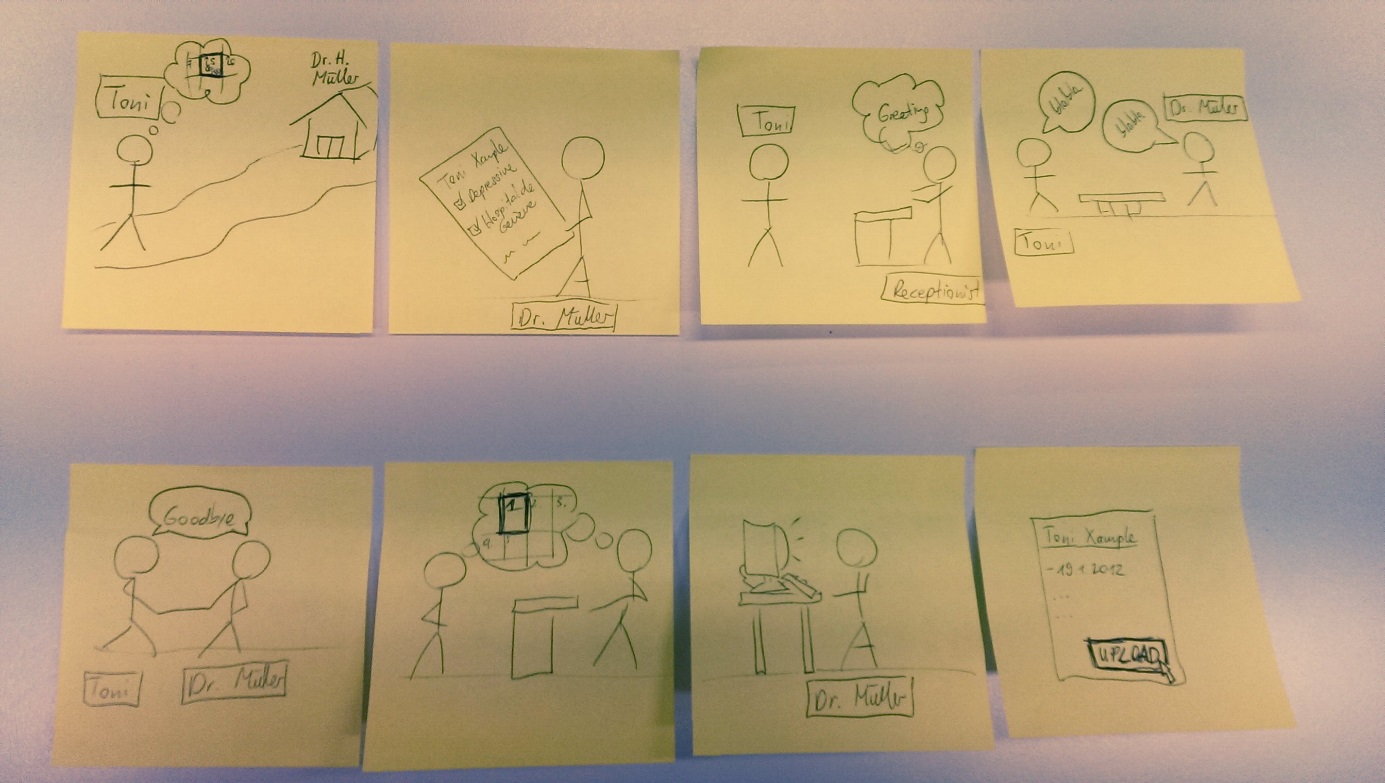 Toni
Dr. H.
Müller
Toni Xample
Depressive
Hospital de
Geneve
Dr. Müller
Toni
Greeting
Receptionist
blabla
blabla
Dr. Müller
Toni
Goodbye
Toni
Dr. Müller
1.
3.
9
Dr. Müller
Toni Xample
- 19 1 2012
...
...
UPLOAD